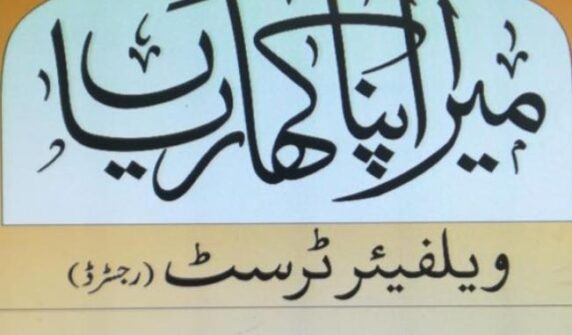 میرا اپنا کھاریاں
ویلفیئر ٹرسٹ (رجسٹرڈ)